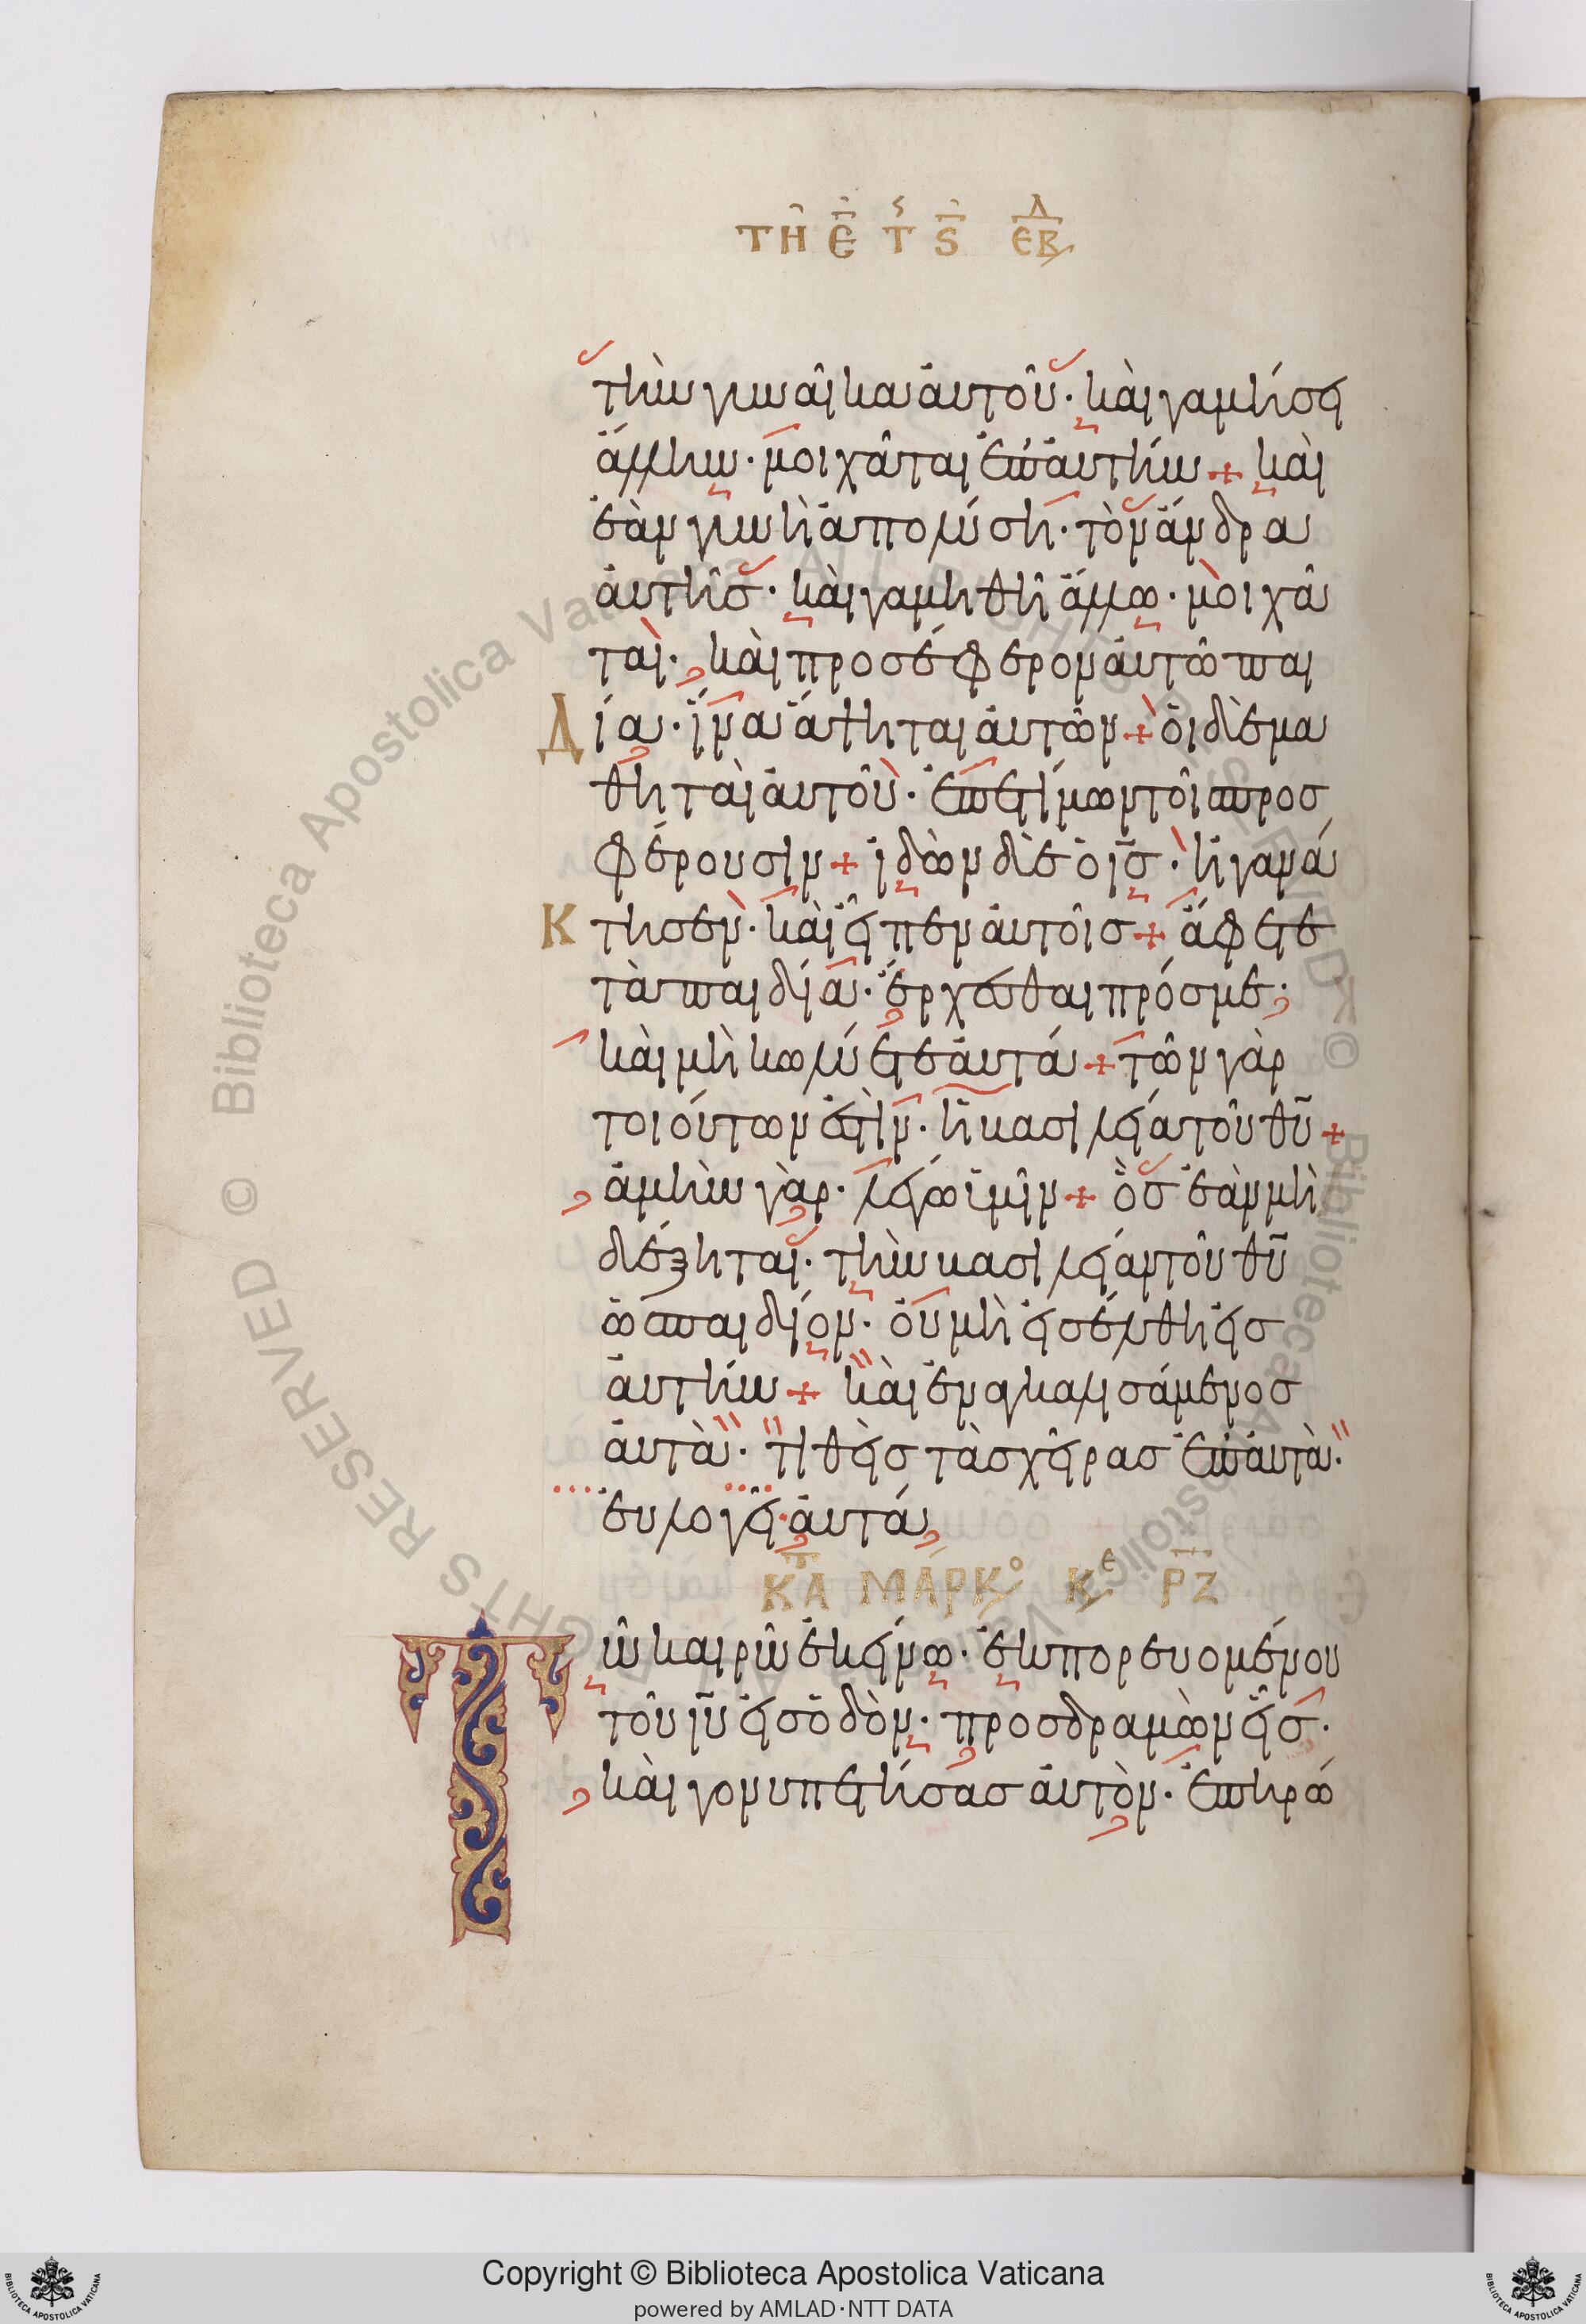 ΤΗ Ε ΤϚ Ϛ ΕΒΔ
τὴν γυναῖκα ἀυτοῦ· κὰι γαμήσει
ἄλλην· μοιχᾶται ἐπ' ἀυτήν + κὰι
ἐὰν γυνὴ ἀπολύση· τὸν ἄνδρα
ἀυτῆσ· κὰι γαμηθῆ ἄλλω· μοιχᾶ
ται· κὰι προσέφερον ἀυτῶ παι
Δία· ἵνα ἅψηται ἀυτῶν + ὁι δὲ μα
θηταὶ ἀυτοῦ· ἐπετίμων τοῖσ προσ
φέρουσιν + ἰδὼν δὲ ὁ ισ· ἠγανά
Κτησεν· κὰι εἶπεν ἀυτοῖσ + ἄφετε
τὰ παιδία· ἔρχεσθαι πρόσ με·
κὰι μὴ κωλύετε ἀυτά + τῶν γὰρ
τοιούτων ἐστὶν· ἡ βασιλεία τοῦ θυ +
ἀμὴν γὰρ· λέγω ὑμῖν + ὃσ ἐὰν μὴ
δέξηται· τὴν βασιλείαν τοῦ θυ
ὡσ παιδίον· ὀυ μὴ εἰσέλθη εἰσ
ἀυτήν + κὰι ἐναγκαλισάμενοσ
ἀυτὰ· τιθεὶσ τὰσ χεῖρασ ἐπ' ἀυτὰ·
ἐυλογεῖ ἀυτά
ΚΑΤ ΜΑΡΚΟ ΚΕ ΡΖ
Τῶ καιρῶ ἐκείνω· ἐκπορευομένου
τοῦ ιυ εἰσ ὁδὸν· προσδραμὼν εἷσ·
κὰι γονυπετήσασ ἀυτὸν· ἐπηρώ
Copyright © Biblioteca Apostolica Vaticana
powered by AMLAD·NTT DATA